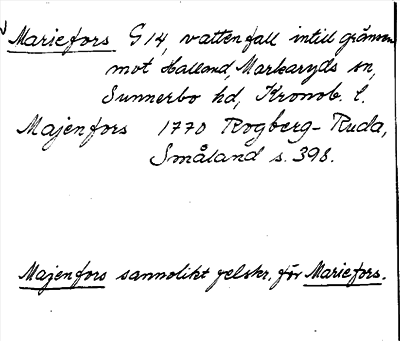 Mariefors G 14, vattenfall intill gränsen
mot Halland, Markaryds sn,
Sunnerbo hd, Kronob. l.
Majenfors 1770 Rogberg-Ruda,
Småland s. 398.
Majenfors sannolikt felskr. för Mariefors.